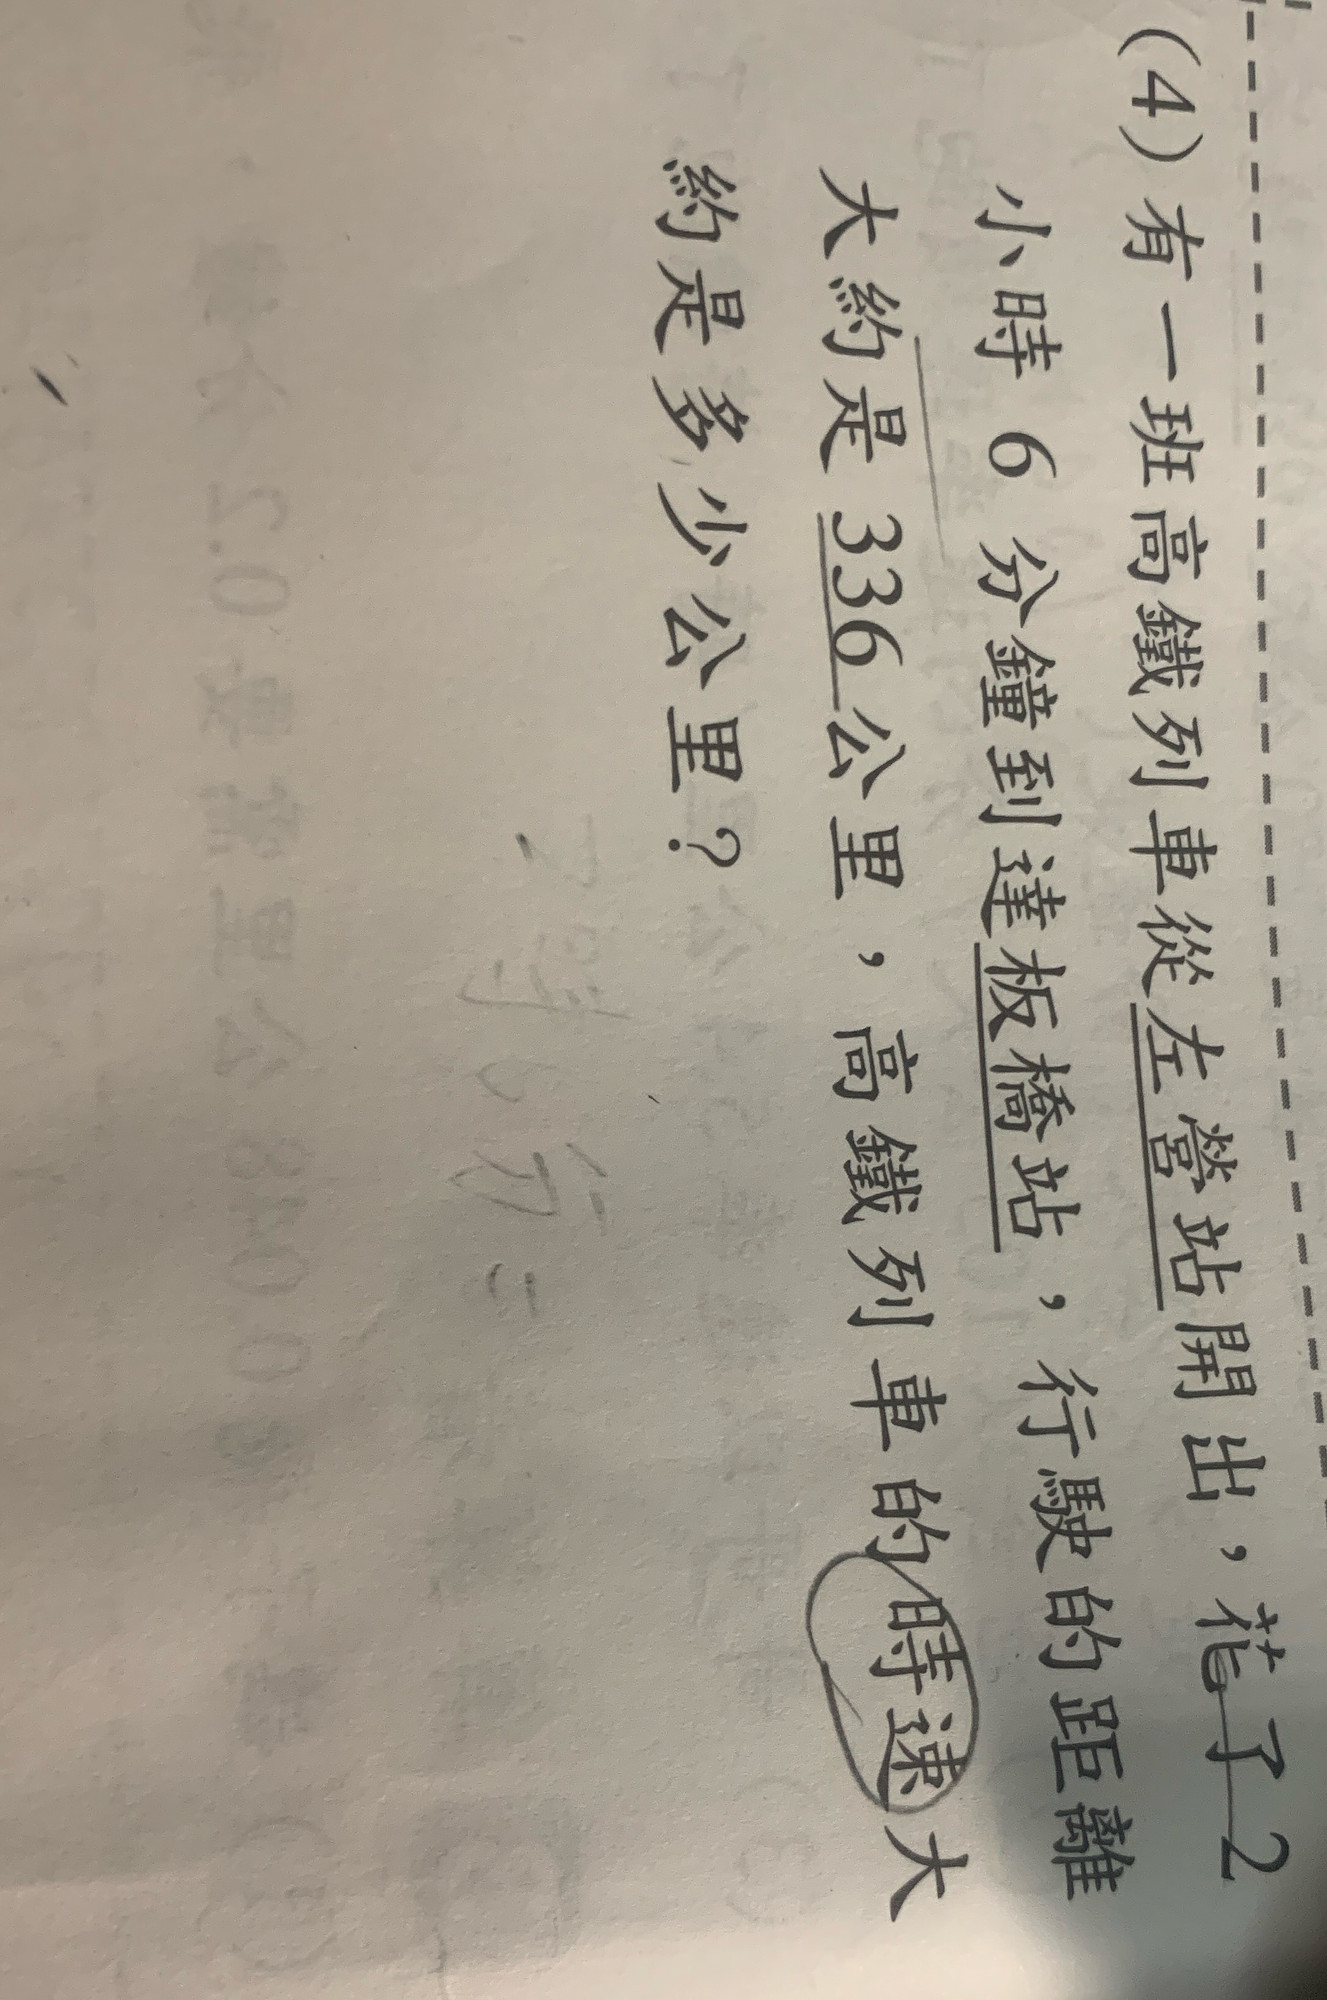 (4)有一班高鐵列車從左營站開出，花了2
小時6分鐘到達板橋站，行駛的距離
大約是336公里，高鐵列車的時速大
約是多少公里？
2時6分=